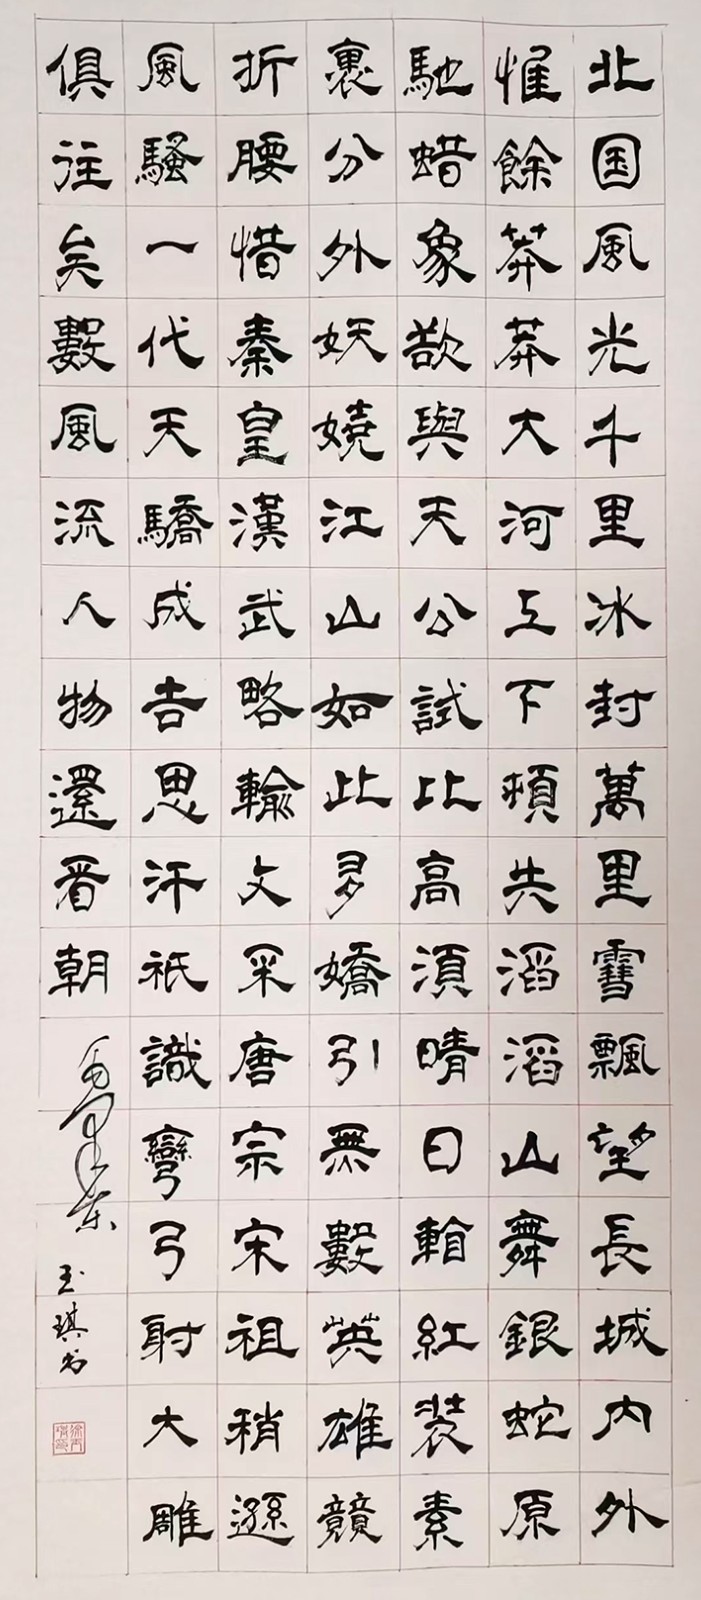 北国風光千里冰封萬里雪飄望長城内外
惟餘莽莽大河上下頓失滔滔山舞銀蛇原
馳蜡象欲與天公試比高須晴日看紅裝素
裹分外妖嬈江山如此多嬌引無數英雄競
折腰惜秦皇漢武略輸文采唐宗宋祖稍遜
風騷一代天驕成吉思汗祇識彎弓射大雕
俱往矣數風流人物還看朝
毛澤東
玉琪书